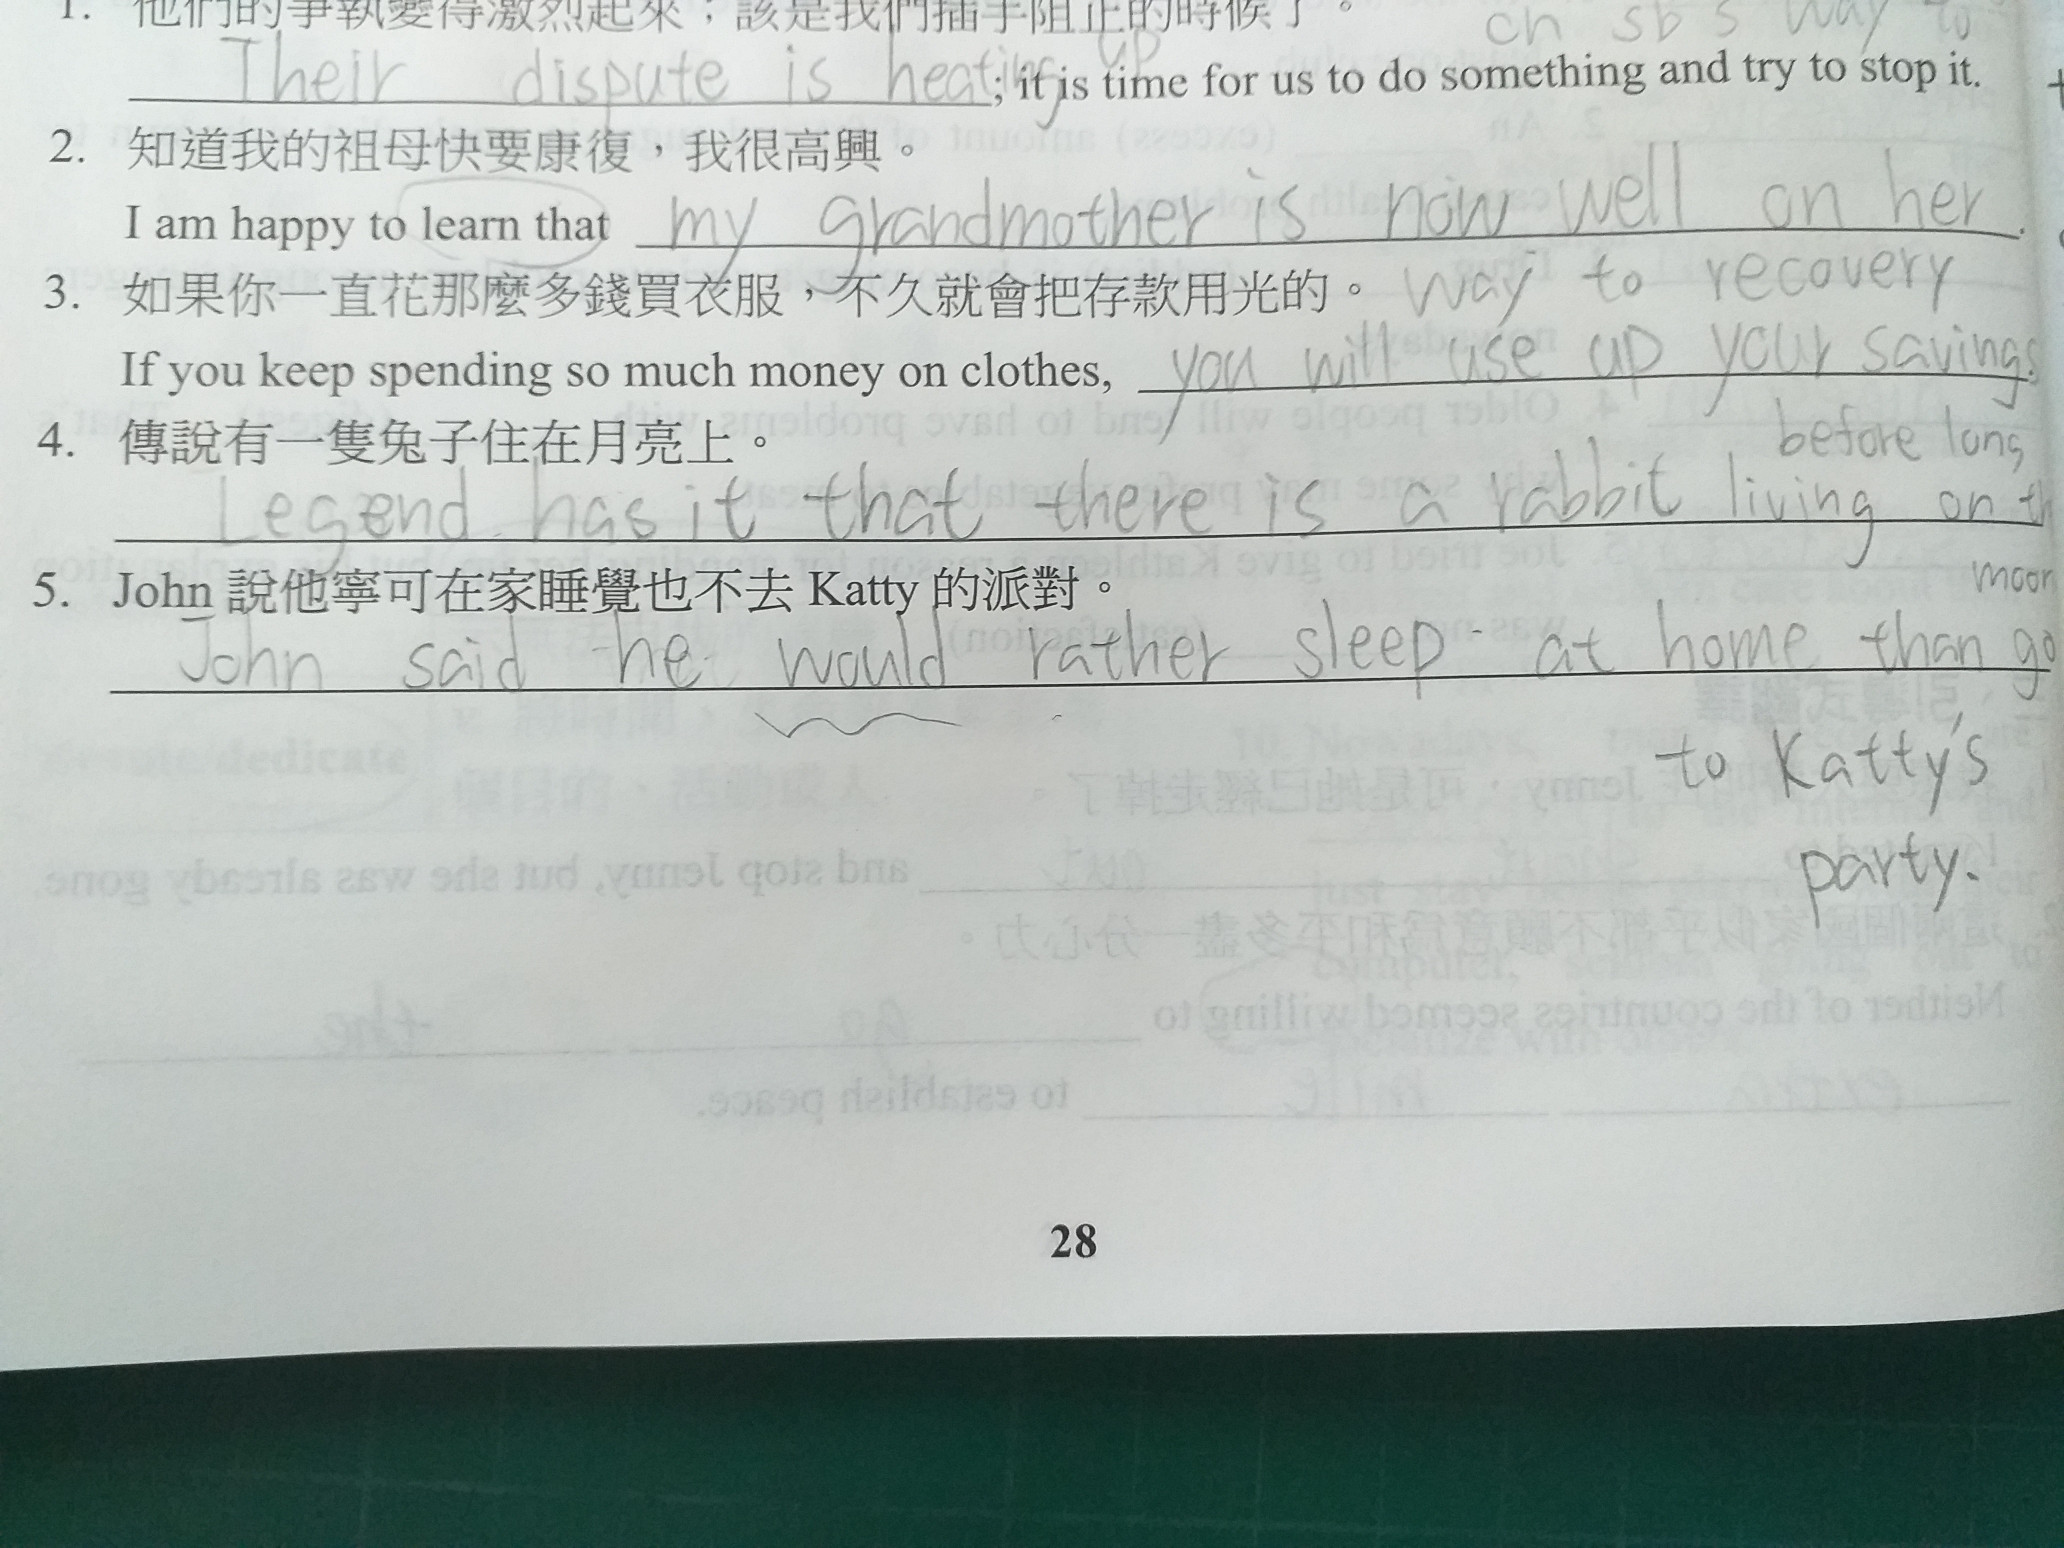 1. 他們的爭執變得激烈起來；該是我們插手阻止的時候了。
on sb's way to
Their dispute is heating up; it is time for us to do something and try to stop it.
2. 知道我的祖母快要康復，我很高興。
I am happy to learn that my grandmother is now well on her.
way to recovery
3. 如果你一直花那麼多錢買衣服，不久就會把存款用光的。
If you keep spending so much money on clothes, you will use up your savings
before long
4. 傳說有一隻兔子住在月亮上。
Legend has it that there is a rabbit living on th
moon
5. John 說他寧可在家睡覺也不去 Katty 的派對。
John said he would rather sleep at home than go
to Katty's
party.
28